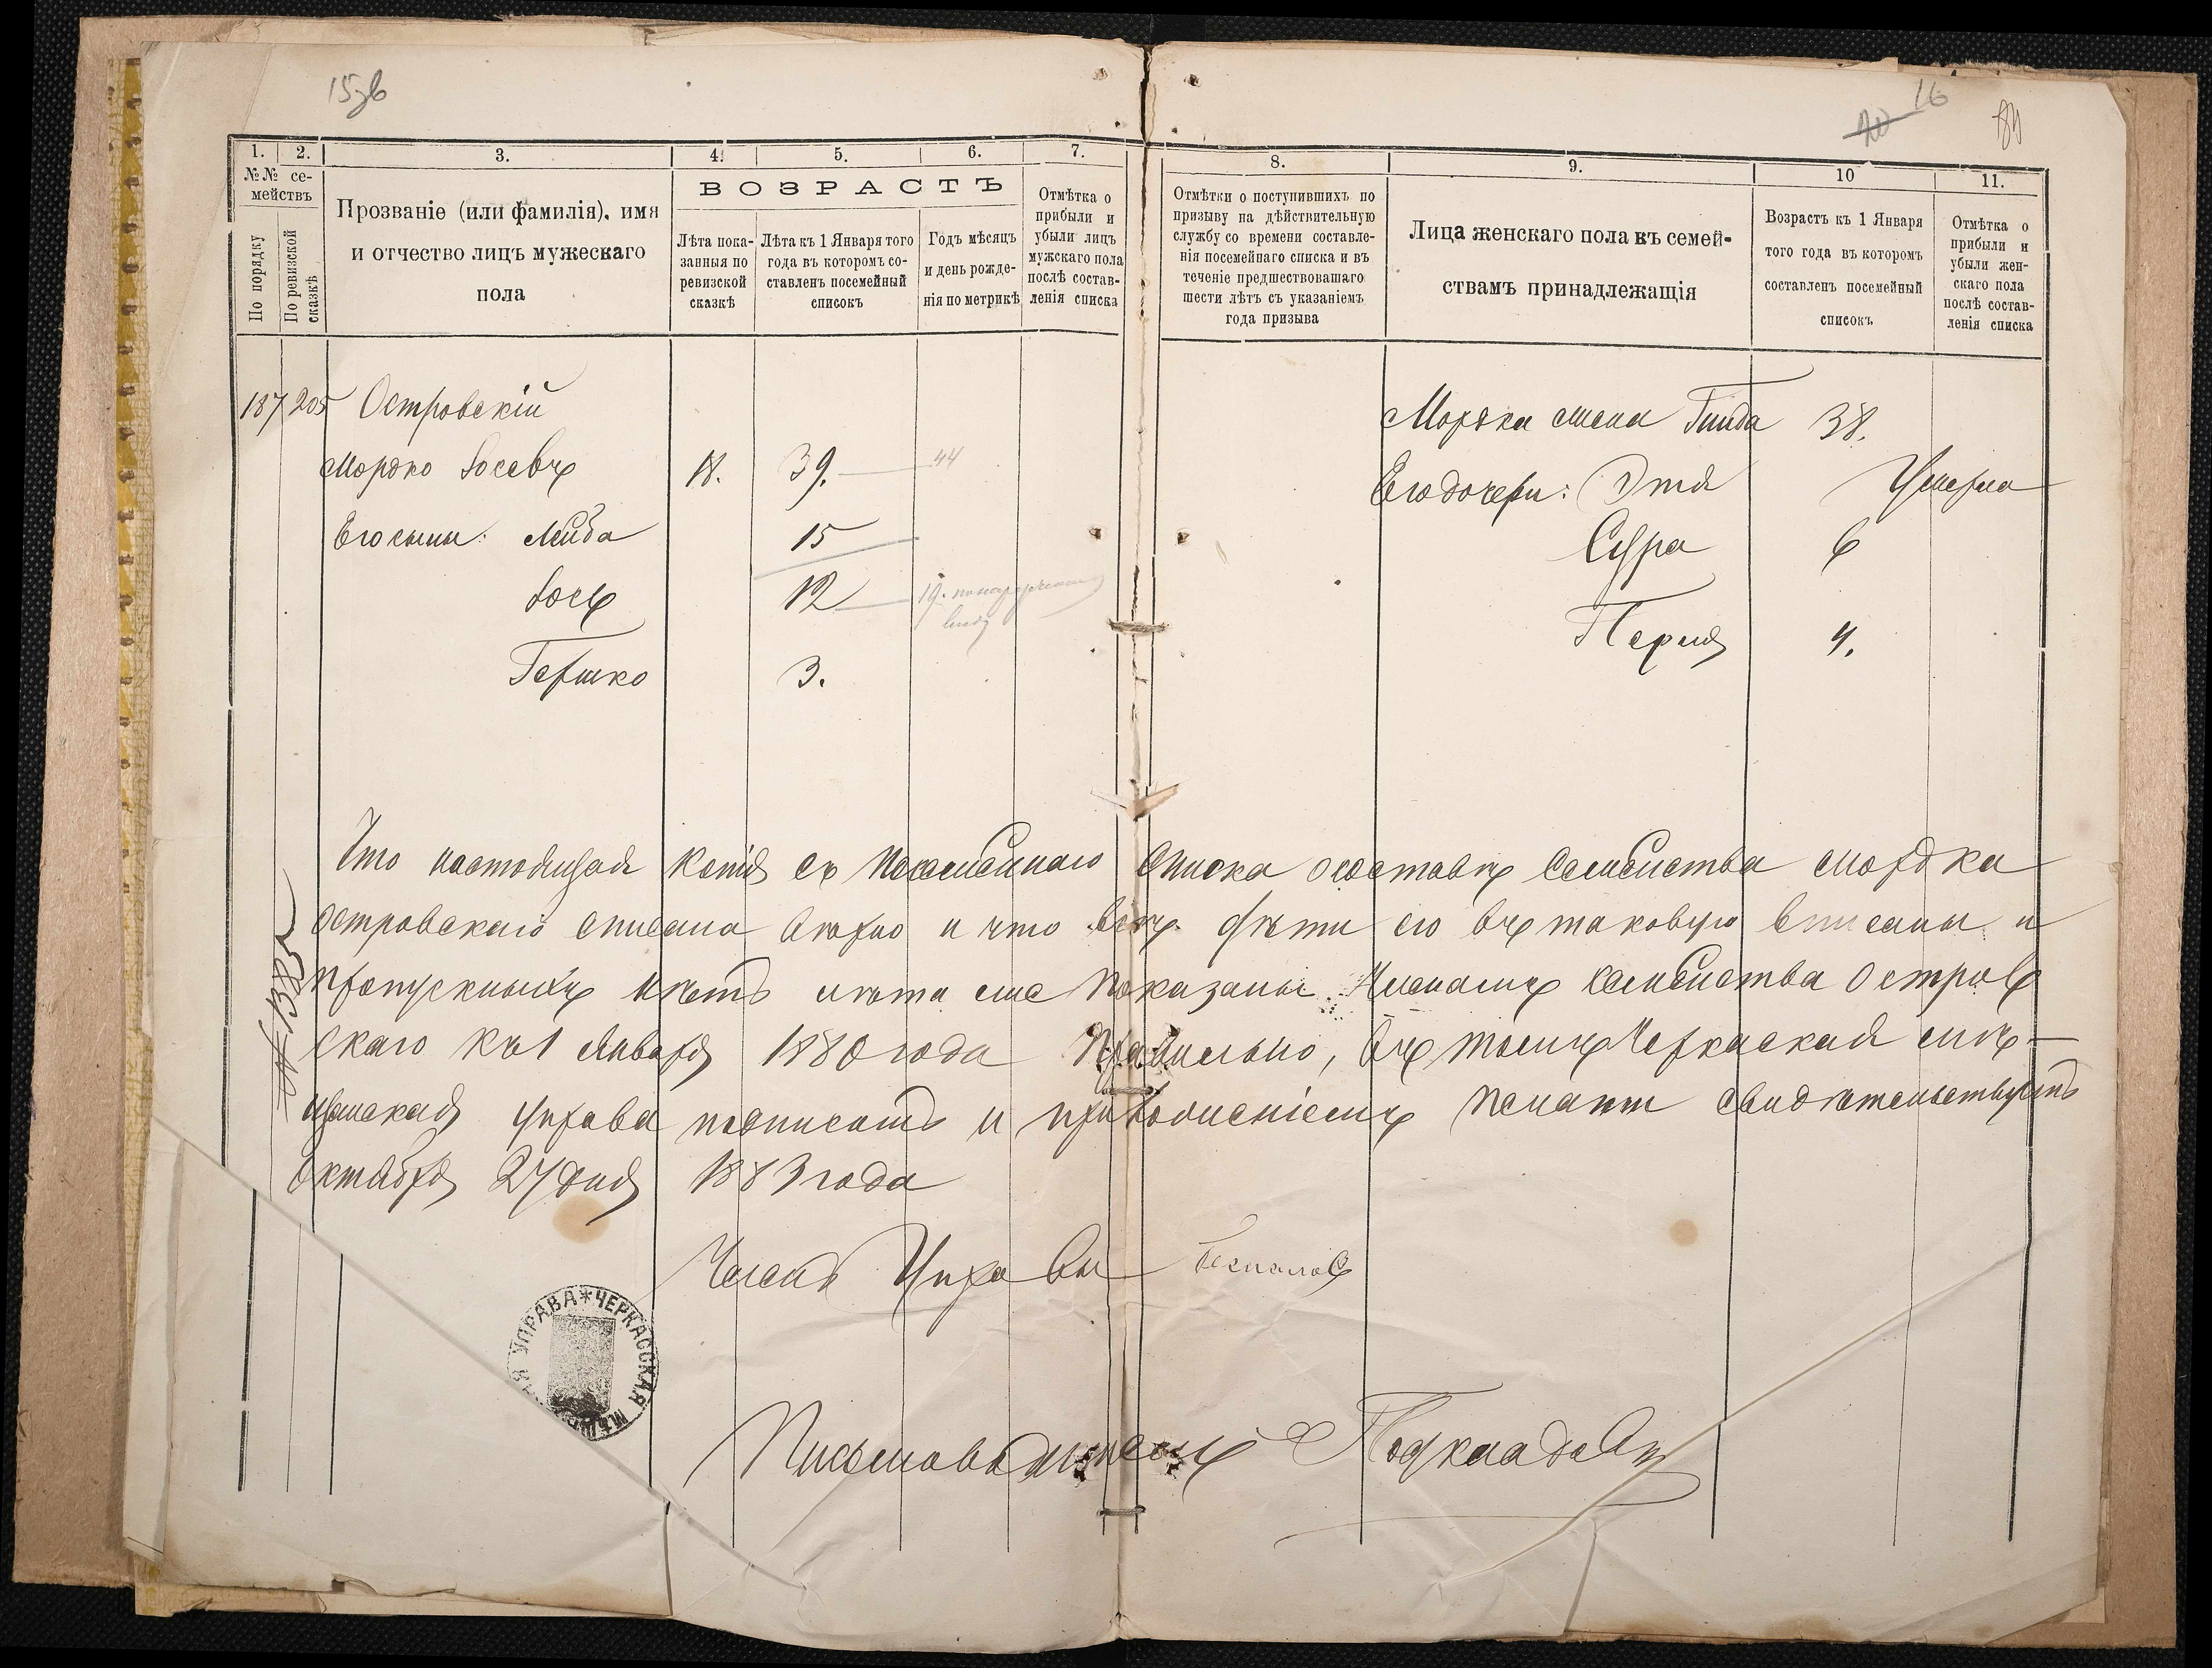 15об
16
20
1. 2. 3. 4. 5. 6. 7. 8. 9. 10 11.
№№ се-
мействъ
По порядку
По ревизской
сказкѣ
Прозваніе (или фамилія), имя
и отчество лицъ мужескаго
пола
ВОЗРАСТЪ
Лѣта пока-
занныя по
ревизской
сказкѣ
Лѣта къ 1 Января того
года въ которомъ со-
ставленъ посемейный
списокъ
Годъ мѣсяцъ
и день рожде-
нія по метрикѣ
Отмѣтка о
прибыли и
убыли лицъ
мужскаго пола
послѣ состав-
ленія списка
Отмѣтки о поступившихъ по
призыву на дѣйствительную
службу со времени составле-
нія посемейнаго списка и въ
теченіе предшествовашаго
шести лѣтъ съ указаніемъ
года призыва
Лица женскаго пола къ семей-
ствамъ принадлежащія
Возрастъ къ 1 Января
того года въ которомъ
составленъ посемейный
списокъ
Отмѣтка о
прибыли и
убыли жен-
скаго пола
послѣ состав-
ленія списка
187 205 Островскій
Мордко Іосевъ 18. 39. 44
Его сыны: Лейба 15
Іось 12 19. по наружному
виду
Гершко 3.
Мордка жена Гинда 38.
Его дочери: Этя Умерла
Сура 6
Перля 4.
Что настоящая копія съ посемейнаго списка о составѣ семейства Мордка
Островскаго списана вѣрно и что всѣ дѣти его въ таковую вписаны и
пропускныхъ нѣтъ лѣта же показаны членамъ семейства Островъ
скаго къ 1 Января 1880 года правильно, въ томъ Черкаская мѣ-
щанская управа подписомъ и приложеніемъ печати свидѣтельствуетъ
Октября 27 дня 1883 года
№ 1385
Членъ Управы
УПРАВА * ЧЕРКАССКАЯ МѢЩ
Письмоводитель